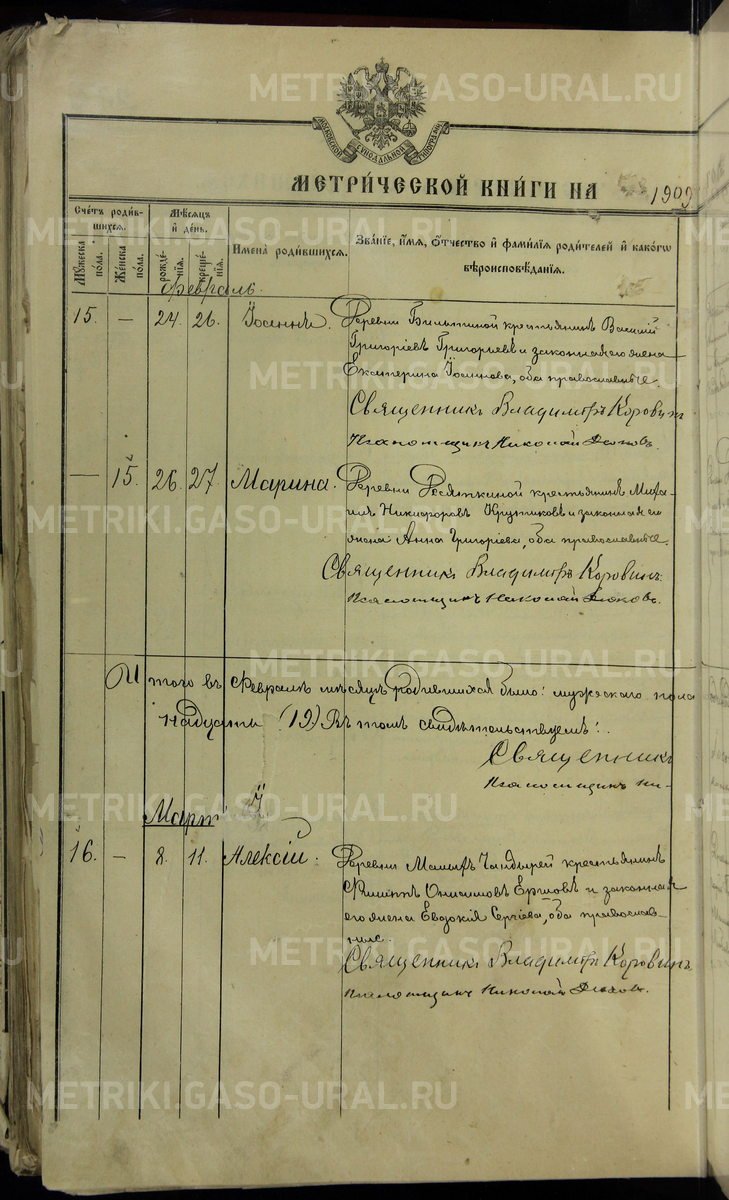 МОСКОВСКОЙ СѴНОДАЛЬНОЙ ТИПОГРАФІИ
МЕТРИ́ЧЕСКОЙ КНИ́ГИ НА 1909
Сче́тъ роди́вшихся.
Мꙋ́жеска по́ла.
Же́нска по́ла.
Мѣ́сѧцъ и҆ де́нь.
рожде́нїѧ.
креще́нїѧ.
И҆мена̀ роди́вшихсѧ.
Зва́нїе, и҆́мѧ, ѻ҆́тчество и҆ фами́лїѧ роди́телей и҆ како́гѡ
вѣроисповѣ́данїѧ.
Февраль.
15. — 24. 26. Іоаннъ. Деревни крестьянинъ Василій
Григоріевъ Григорьевъ и законная его жена
Екатерина, оба православные.
Священникъ Владиміръ Коровинъ
Псаломщикъ Николай
— 15. 26. 27. Марина. Деревни крестьянинъ Миха-
илъ Никифоровъ Крутиковъ и законная его
жена Анна Григоріева, оба православные.
Священникъ Владиміръ Коровинъ.
Псаломщикъ Николай
Итого въ Февралѣ мѣсяцѣ родившихся было: мужескаго пола
надцать (12) Въ томъ свидѣтельствуемъ:
Священникъ
Псаломщикъ Ни-
Мартъ
16. — 8. 11. Алексій. Деревни крестьянинъ
Филиппъ Онисимовъ Ершовъ и законная
его жена Евдокія Сергіева, оба православ-
ные.
Священникъ Владиміръ Коровинъ
Псаломщикъ Николай
METRIKI.GASO-URAL.RU